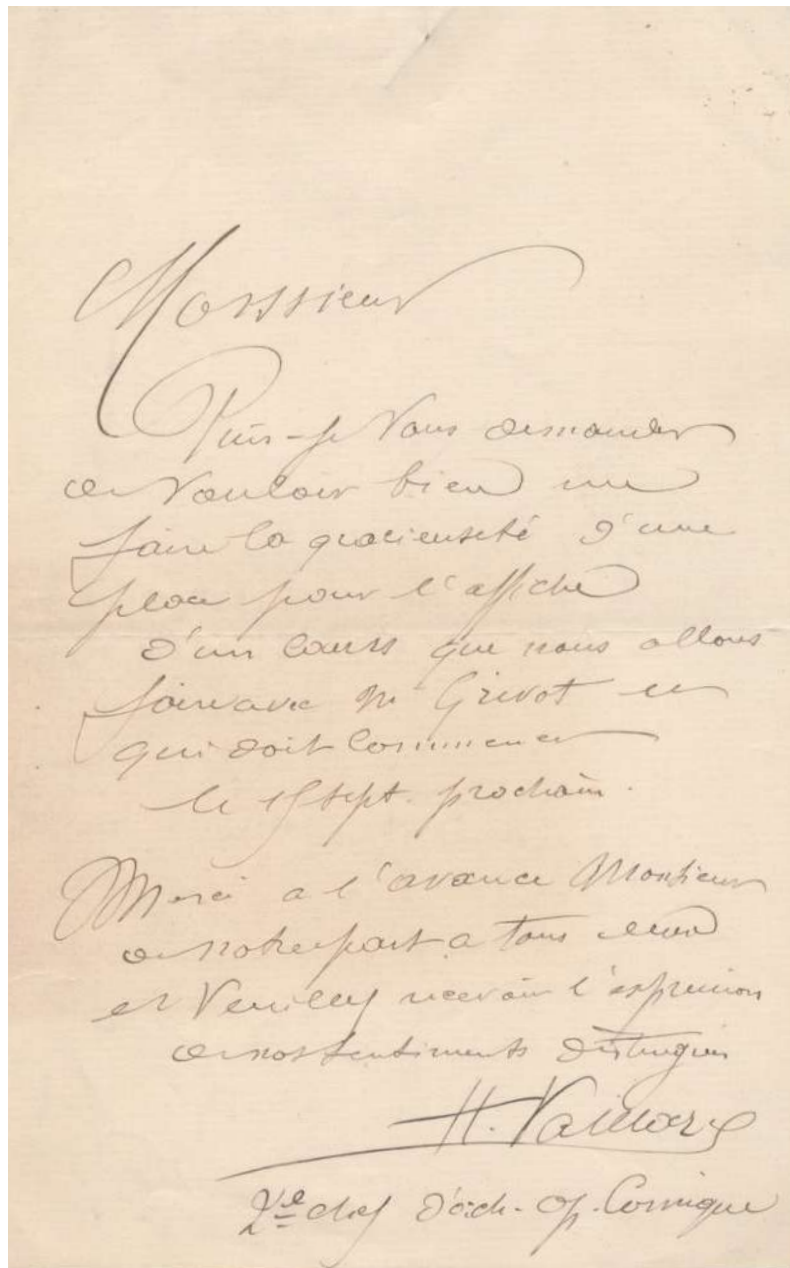 Monsieur
Puis-je Vous demander
de Vouloir bien me
faire la gracieuseté d'une
place pour l'affiche
d'un Cours que nous allons
faire avec Mr Grivot et
qui doit Commencer
le 15 sept. prochain.
Merci a l'avance Monsieur
de notre part a tous deux
et Veuillez recevoir l'expression
de nos sentiments distingués
H. Vaillard
2e chef d'orch. Op. Comique